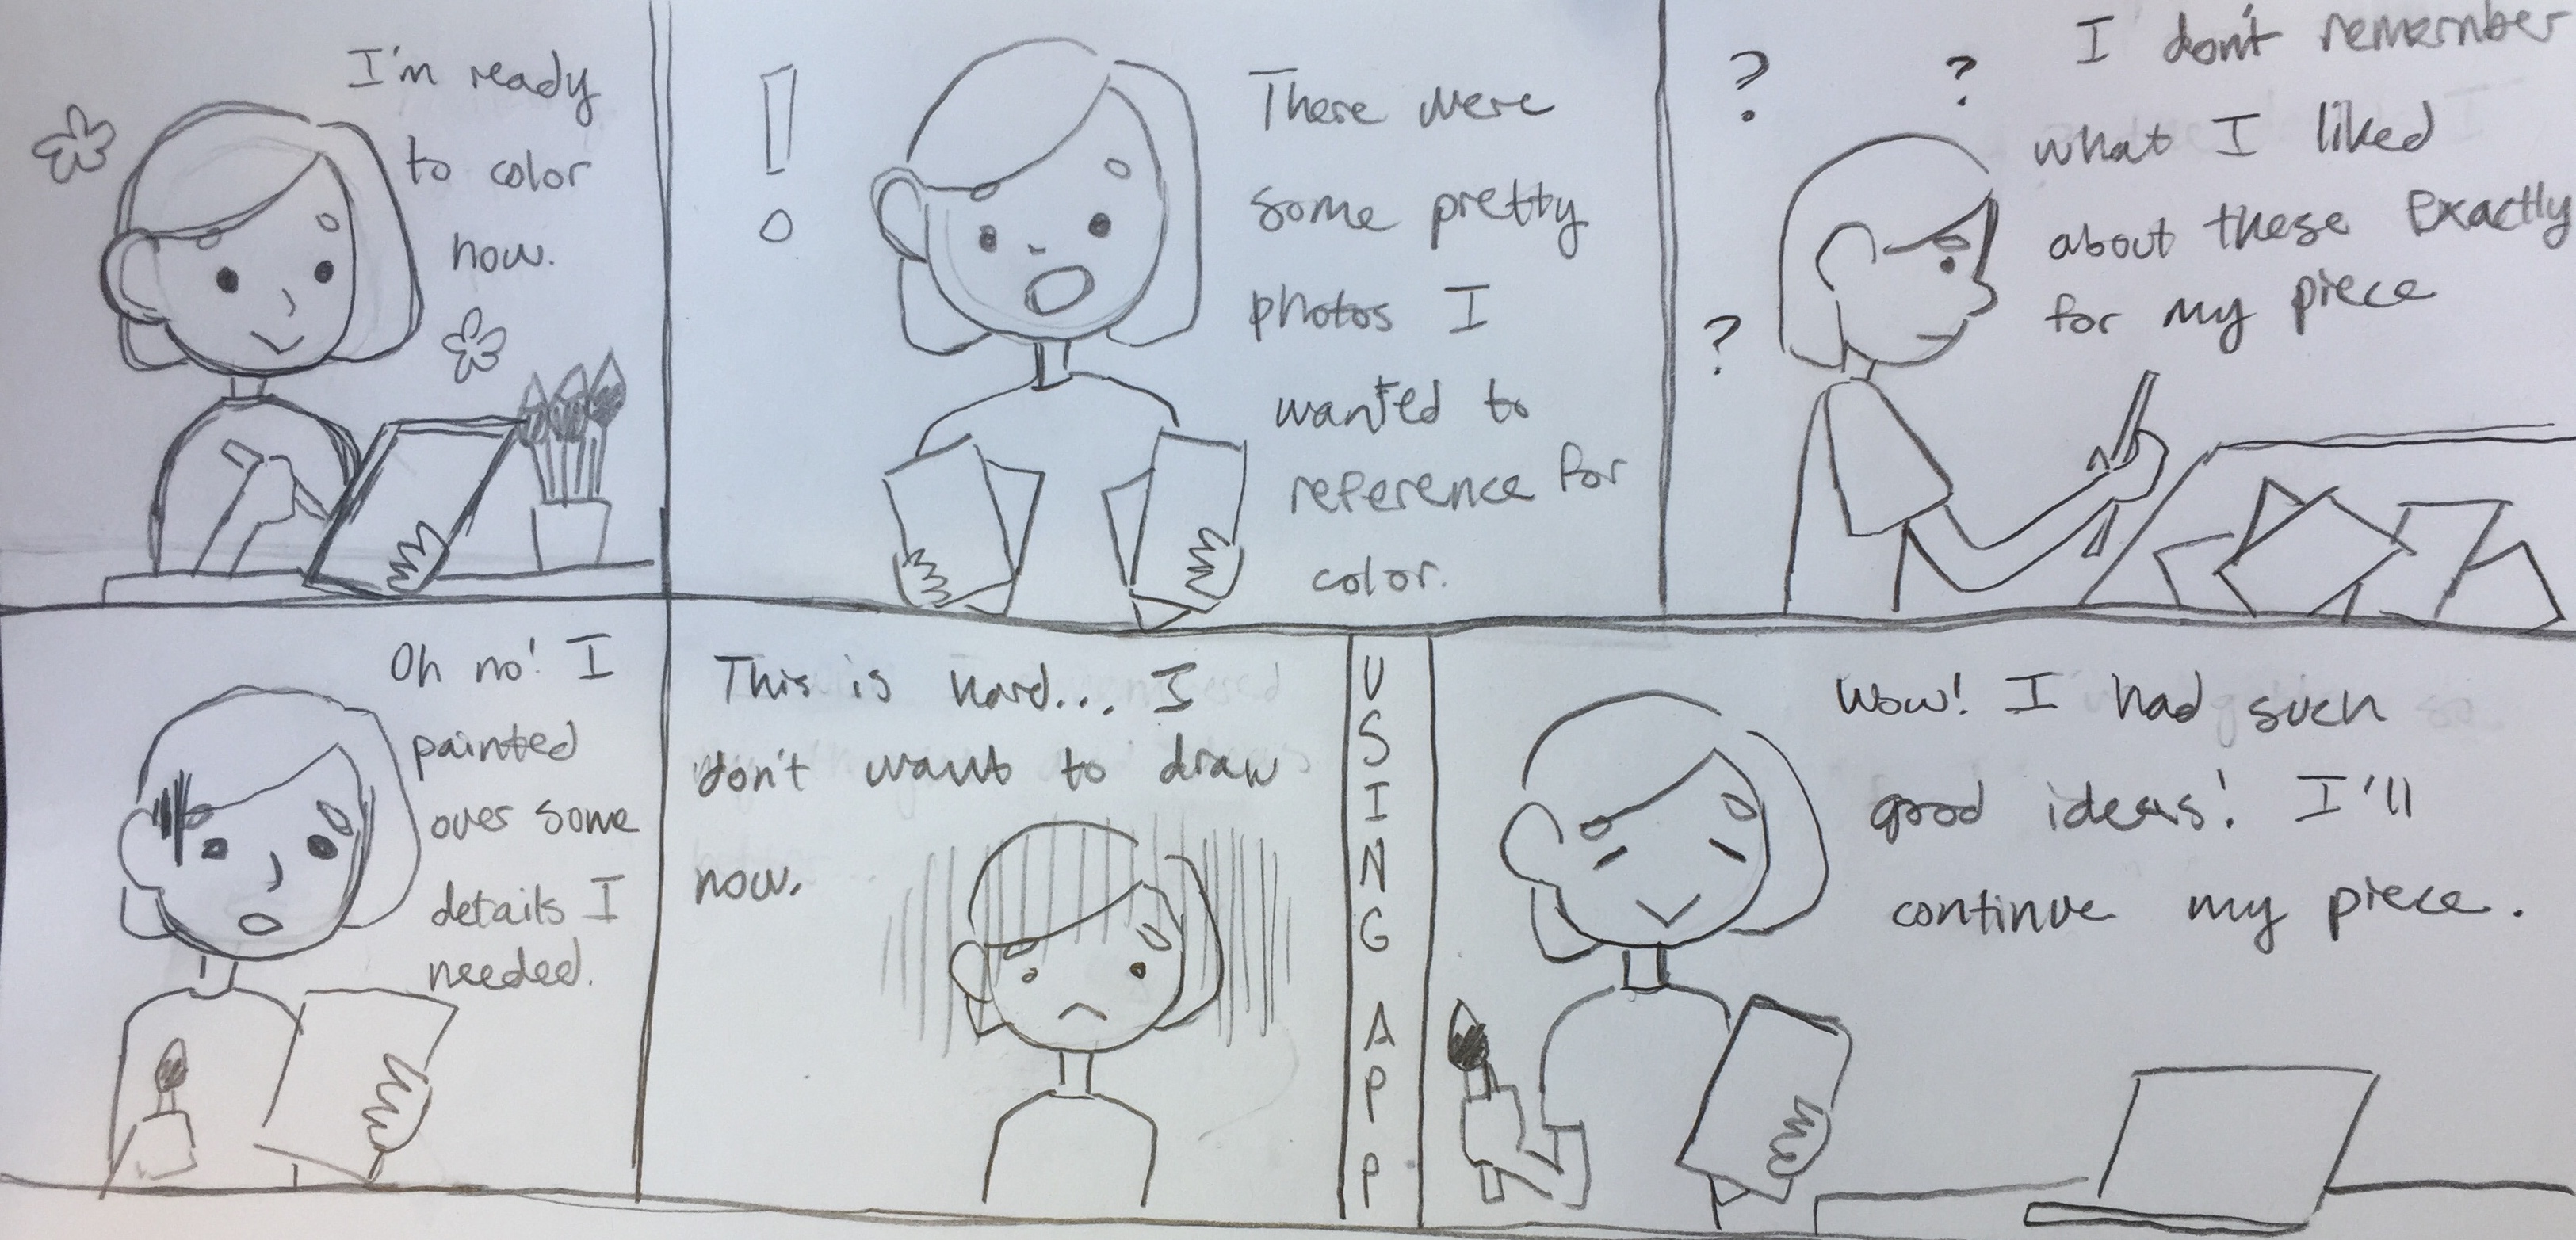 I'm ready
to color
now.
!
There were
some pretty
photos I
wanted to
reference for
color.
? ?
?
I don't remember
what I liked
about these Exactly
for my piece
Oh no! I
painted
over some
details I
needed.
This is hard... I
don't want to draw
now.
USING APP
Wow! I had such
good ideas! I'll
continue my piece.